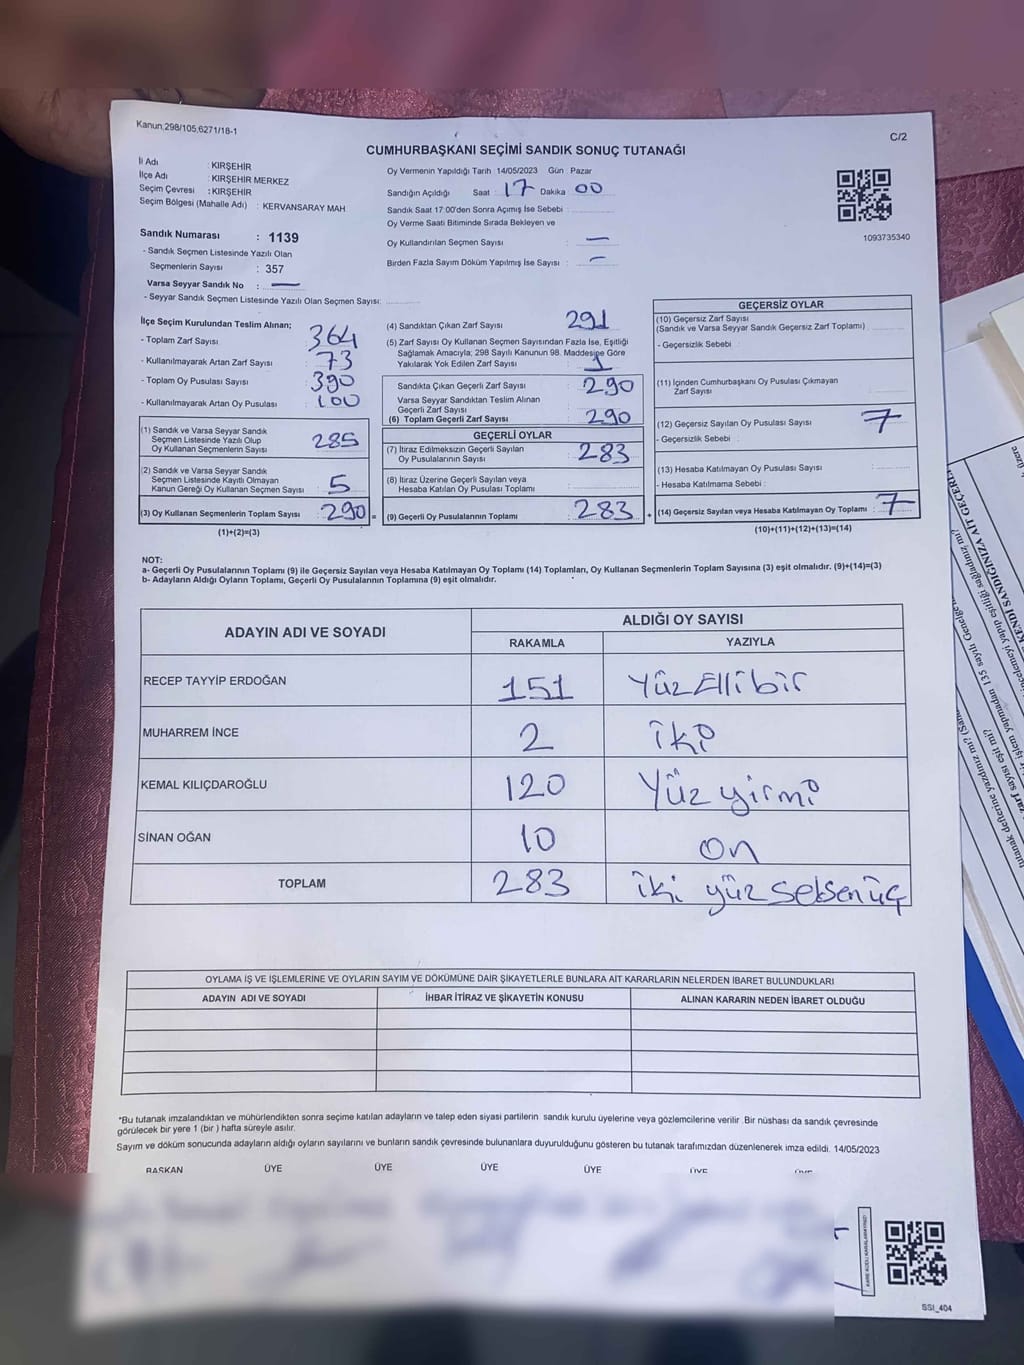 Kanun,298/105,6271/18-1
C/2
CUMHURBAŞKANI SEÇİMİ SANDIK SONUÇ TUTANAĞI
İl Adı : KIRŞEHİR
İlçe Adı : KIRŞEHİR MERKEZ
Seçim Çevresi : KIRŞEHİR
Seçim Bölgesi (Mahalle Adı) : KERVANSARAY MAH
Sandık Numarası : 1139
- Sandık Seçmen Listesinde Yazılı Olan
Seçmenlerin Sayısı : 357
Varsa Seyyar Sandık No : —
- Seyyar Sandık Seçmen Listesinde Yazılı Olan Seçmen Sayısı:
Oy Vermenin Yapıldığı Tarih 14/05/2023 Gün : Pazar
Sandığın Açıldığı Saat : 17 Dakika 00
Sandık Saat 17:00'den Sonra Açımış İse Sebebi :
Oy Verme Saati Bitiminde Sırada Bekleyen ve
Oy Kullandırılan Seçmen Sayısı : —
Birden Fazla Sayım Döküm Yapılmış İse Sayısı : —
1093735340
İlçe Seçim Kurulundan Teslim Alınan;
- Toplam Zarf Sayısı : 364
- Kullanılmayarak Artan Zarf Sayısı : 73
- Toplam Oy Pusulası Sayısı : 390
- Kullanılmayarak Artan Oy Pusulası : 100
(1) Sandık ve Varsa Seyyar Sandık
Seçmen Listesinde Yazılı Olup
Oy Kullanan Seçmenlerin Sayısı : 285
(2) Sandık ve Varsa Seyyar Sandık
Seçmen Listesinde Kayıtlı Olmayan
Kanun Gereği Oy Kullanan Seçmen Sayısı : 5
(3) Oy Kullanan Seçmenlerin Toplam Sayısı : 290 =
(1)+(2)=(3)
(4) Sandıktan Çıkan Zarf Sayısı : 291
(5) Zarf Sayısı Oy Kullanan Seçmen Sayısından Fazla İse, Eşitliği
Sağlamak Amacıyla; 298 Sayılı Kanunun 98. Maddesine Göre
Yakılarak Yok Edilen Zarf Sayısı : 1
Sandıkta Çıkan Geçerli Zarf Sayısı : 290
Varsa Seyyar Sandıktan Teslim Alınan
Geçerli Zarf Sayısı
(6) Toplam Geçerli Zarf Sayısı : 290
GEÇERLİ OYLAR
(7) İtiraz Edilmeksizin Geçerli Sayılan
Oy Pusulalarının Sayısı : 283
(8) İtiraz Üzerine Geçerli Sayılan veya
Hesaba Katılan Oy Pusulası Toplamı :
(9) Geçerli Oy Pusulalarının Toplamı : 283 +
GEÇERSİZ OYLAR
(10) Geçersiz Zarf Sayısı
(Sandık ve Varsa Seyyar Sandık Geçersiz Zarf Toplamı)
- Geçersizlik Sebebi :
(11) İçinden Cumhurbaşkanı Oy Pusulası Çıkmayan
Zarf Sayısı
(12) Geçersiz Sayılan Oy Pusulası Sayısı : 7
- Geçersizlik Sebebi :
(13) Hesaba Katılmayan Oy Pusulası Sayısı :
- Hesaba Katılmama Sebebi :
(14) Geçersiz Sayılan veya Hesaba Katılmayan Oy Toplamı : 7
(10)+(11)+(12)+(13)=(14)
NOT:
a- Geçerli Oy Pusulalarının Toplamı (9) ile Geçersiz Sayılan veya Hesaba Katılmayan Oy Toplamı (14) Toplamları, Oy Kullanan Seçmenlerin Toplam Sayısına (3) eşit olmalıdır. (9)+(14)=(3)
b- Adayların Aldığı Oyların Toplamı, Geçerli Oy Pusulalarının Toplamına (9) eşit olmalıdır.
ADAYIN ADI VE SOYADI
ALDIĞI OY SAYISI
RAKAMLA YAZIYLA
RECEP TAYYİP ERDOĞAN 151 Yüz Elli bir
MUHARREM İNCE 2 iki
KEMAL KILIÇDAROĞLU 120 Yüz yirmi
SİNAN OĞAN 10 On
TOPLAM 283 iki yüz seksen üç
OYLAMA İŞ VE İŞLEMLERİNE VE OYLARIN SAYIM VE DÖKÜMÜNE DAİR ŞİKAYETLERLE BUNLARA AİT KARARLARIN NELERDEN İBARET BULUNDUKLARI
ADAYIN ADI VE SOYADI İHBAR İTİRAZ VE ŞİKAYETİN KONUSU ALINAN KARARIN NEDEN İBARET OLDUĞU
*Bu tutanak imzalandıktan ve mühürlendikten sonra seçime katılan adayların ve talep eden siyasi partilerin sandık kurulu üyelerine veya gözlemcilerine verilir .Bir nüshası da sandık çevresinde
görülecek bir yere 1 (bir ) hafta süreyle asılır.
Sayım ve döküm sonucunda adayların aldığı oyların sayılarını ve bunların sandık çevresinde bulunanlara duyurulduğunu gösteren bu tutanak tarafımızdan düzenlenerek imza edildi. 14/05/2023
BAŞKAN ÜYE ÜYE ÜYE ÜYE ÜYE ÜYE
SSI_404